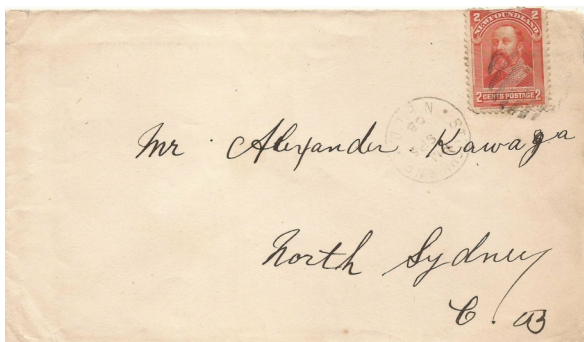 2 2
NEWFOUNDLAND
2 CENTS POSTAGE 2
Mr Alexander Kawaga
North Sydney
C. B